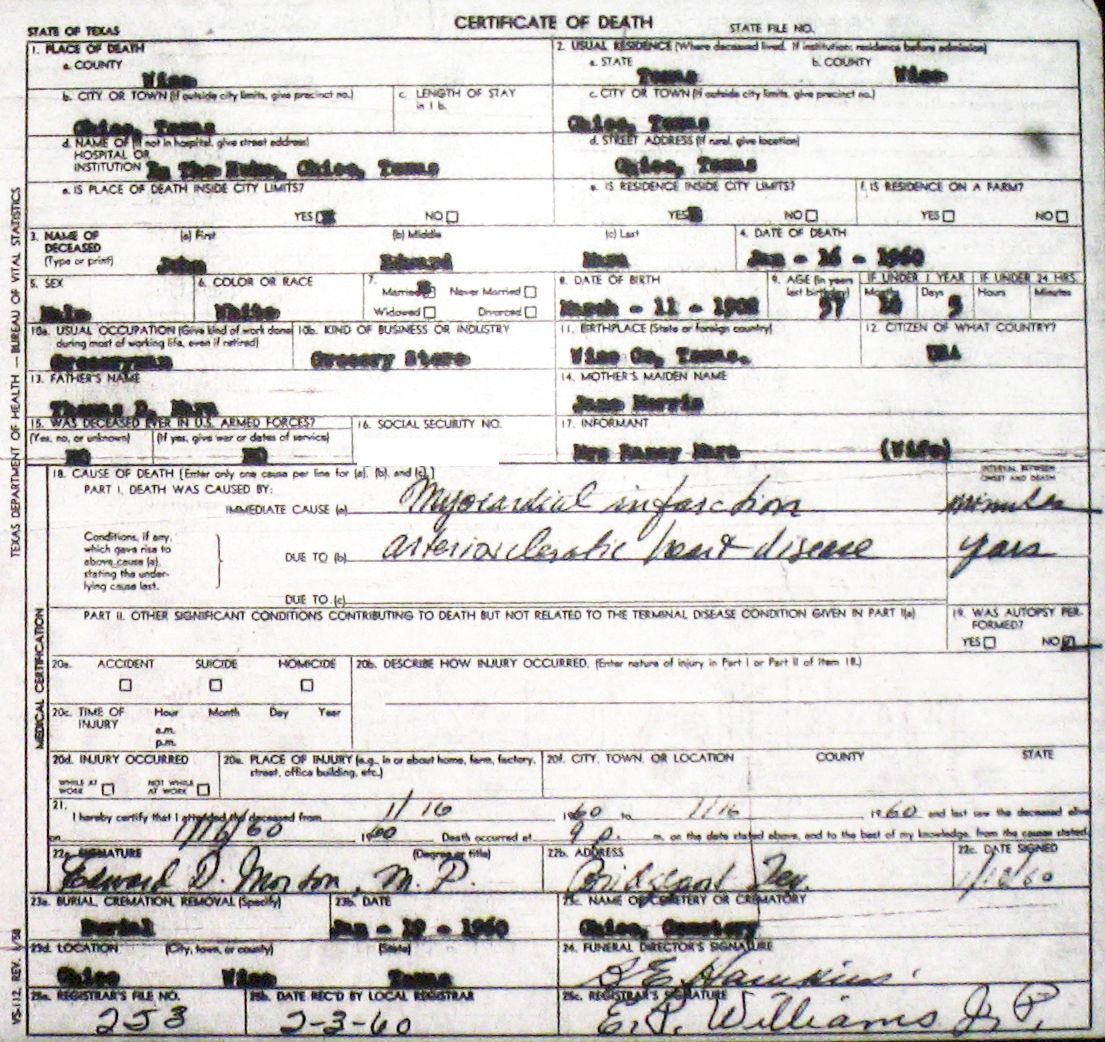 CERTIFICATE OF DEATH
STATE OF TEXAS STATE FILE NO.
1. PLACE OF DEATH
a. COUNTY
Wise
2. USUAL RESIDENCE (Where deceased lived. If institution: residence before admission)
a. STATE b. COUNTY
Texas Wise
b. CITY OR TOWN (If outside city limits, give precinct no.)
Chico, Texas
c. LENGTH OF STAY
in 1 b.
c. CITY OR TOWN (If outside city limits, give precinct no.)
Chico, Texas
d. NAME OF (If not in hospital, give street address)
HOSPITAL OR
INSTITUTION In The Home, Chico, Texas
d. STREET ADDRESS (If rural, give location)
Chico, Texas
e. IS PLACE OF DEATH INSIDE CITY LIMITS?
YES NO
e. IS RESIDENCE INSIDE CITY LIMITS?
YES NO
f. IS RESIDENCE ON A FARM?
YES NO
3. NAME OF
DECEASED
(Type or print)
(a) First (b) Middle (c) Last
John Edward
4. DATE OF DEATH
Jan - 16 - 1960
5. SEX
Male
6. COLOR OR RACE
White
7.
Married Never Married
Widowed Divorced
8. DATE OF BIRTH
March - 11 - 1902
9. AGE (In years
last birthday)
57
IF UNDER 1 YEAR IF UNDER 24 HRS.
Months Days Hours Minutes
10 5
10a. USUAL OCCUPATION (Give kind of work done
during most of working life, even if retired)
Groceryman
10b. KIND OF BUSINESS OR INDUSTRY
Grocery Store
11. BIRTHPLACE (State or foreign country)
Wise Co, Texas.
12. CITIZEN OF WHAT COUNTRY?
USA
13. FATHER'S NAME
Thomas D.
14. MOTHER'S MAIDEN NAME
Jane
15. WAS DECEASED EVER IN U.S. ARMED FORCES?
(Yes, no, or unknown) (If yes, give war or dates of service)
NO NO
16. SOCIAL SECURITY NO.
17. INFORMANT
Mrs (Wife)
18. CAUSE OF DEATH [Enter only one cause per line for (a), (b), and (c).]
INTERVAL BETWEEN
ONSET AND DEATH
PART I. DEATH WAS CAUSED BY:
IMMEDIATE CAUSE (a) Myocardial infarction minutes
Conditions, if any,
which gave rise to
above cause (a),
stating the under-
lying cause last.
DUE TO (b) arteriosclerotic heart disease years
DUE TO (c)
PART II. OTHER SIGNIFICANT CONDITIONS CONTRIBUTING TO DEATH BUT NOT RELATED TO THE TERMINAL DISEASE CONDITION GIVEN IN PART I(a)
19. WAS AUTOPSY PER-
FORMED?
YES NO
20a. ACCIDENT SUICIDE HOMICIDE
20b. DESCRIBE HOW INJURY OCCURRED. (Enter nature of injury in Part I or Part II of Item 18.)
20c. TIME OF
INJURY
Hour Month Day Year
a.m.
p.m.
20d. INJURY OCCURRED
WHILE AT
WORK
NOT WHILE
AT WORK
20e. PLACE OF INJURY (e.g., in or about home, farm, factory,
street, office building, etc.)
20f. CITY, TOWN, OR LOCATION COUNTY STATE
21.
I hereby certify that I attended the deceased from 1/16 1960 to 1/16 1960 and last saw the deceased alive
on 1/16/60 1960 Death occurred at 9 p. m. on the date stated above, and to the best of my knowledge, from the causes stated.
22a. SIGNATURE (Degree or title)
Edward D. Morton, M.D.
22b. ADDRESS
Bridgeport Tex.
22c. DATE SIGNED
23a. BURIAL, CREMATION, REMOVAL (Specify)
Burial
23b. DATE
Jan - 19 - 1960
23c. NAME OF CEMETERY OR CREMATORY
Chico, Cemetery
23d. LOCATION (City, town, or county) (State)
Chico Wise Texas
24. FUNERAL DIRECTOR'S SIGNATURE
Hawkins
25a. REGISTRAR'S FILE NO.
253
25b. DATE REC'D BY LOCAL REGISTRAR
2-3-60
25c. REGISTRAR'S SIGNATURE
E.P. Williams J.P.
TEXAS DEPARTMENT OF HEALTH — BUREAU OF VITAL STATISTICS
MEDICAL CERTIFICATION
VS-112, REV. 1/58